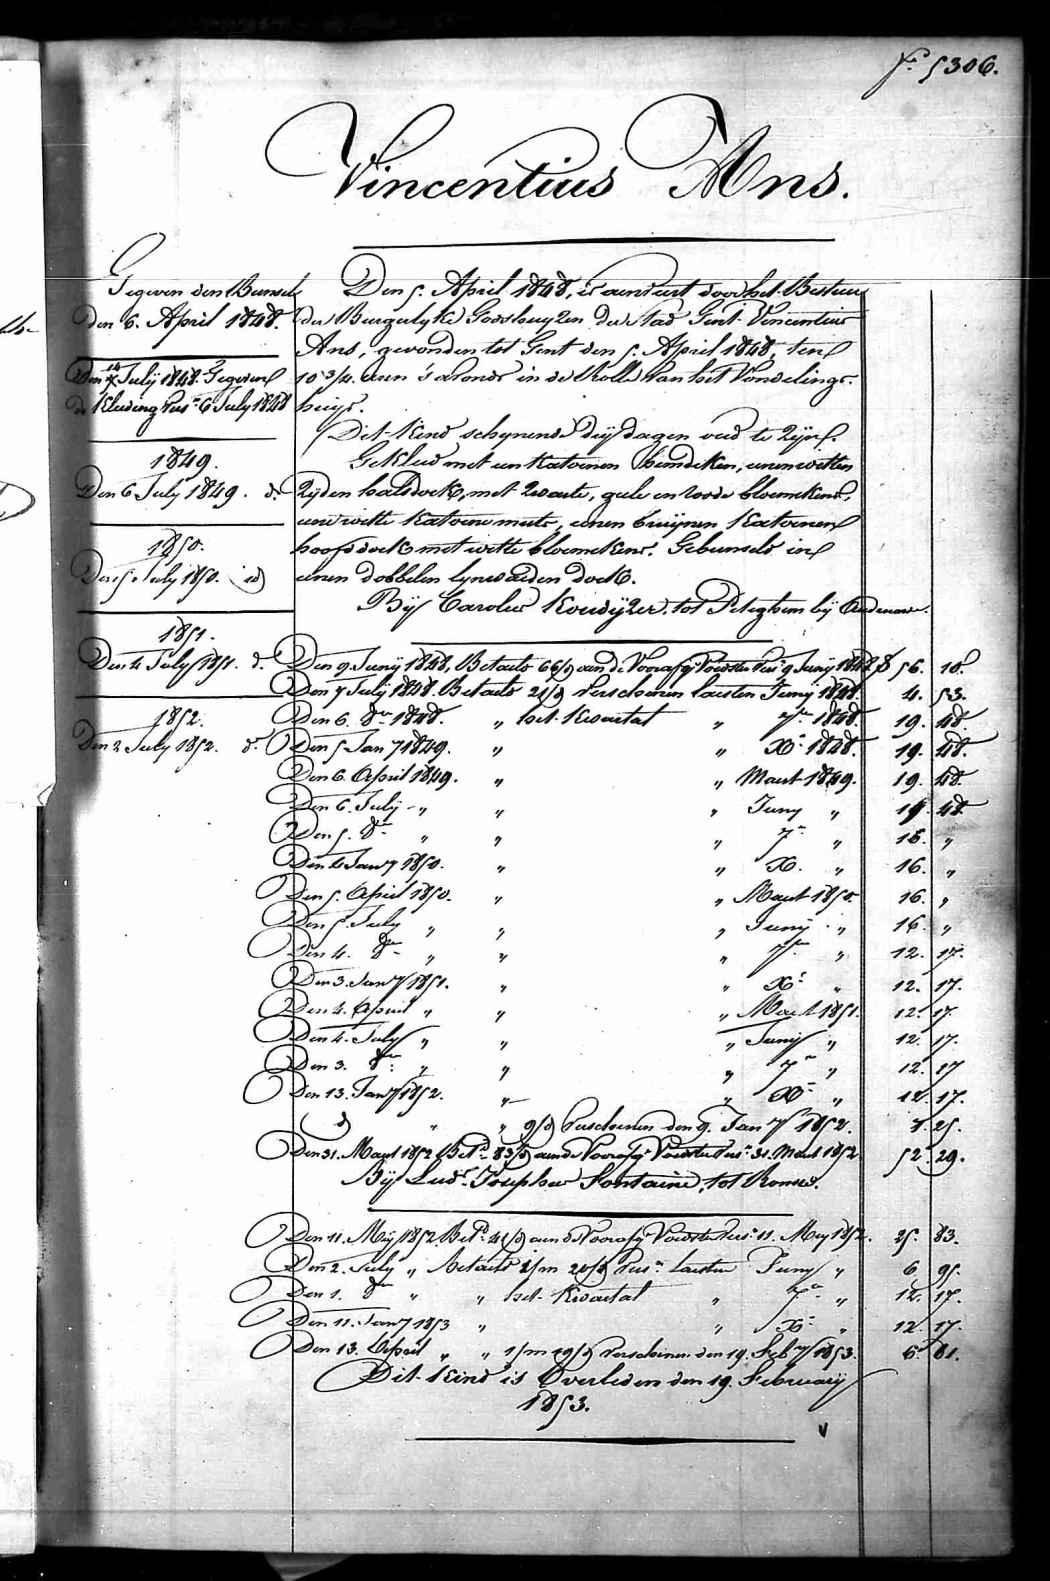 fº 5306.
Vincentius Ans.
Gegeven den Bunsel
den 6. April 1848.
Den 14 July 1848. Gegeven
de Kleeding 6 July 1848
1849.
Den 6 July 1849. dº
1850.
Den 5 July 1850. id
1851.
Den 4 July 1851. dº
1852.
Den 2 July 1852. dº
Den 5. April 1848, is aenveert door het Bestuur
der Burgerlyke Godshuyzen der Stad Gent Vincentius
Ans, gevonden tot Gent den 5. April 1848, ten
10 3/4 uren 's avonds in de Rolle van het Vondelings-
huys.
Dit Kind schynende dry dagen oud te zyn.
Gekleed met een Katoenen hemdeken, eenen witten
Zyden halsdoek, met zwarte, gele en roode bloemekens,
eene witte Katoene muts, eenen bruynen Katoenen
hoofdoek met witte bloemekens. Gebunseld in
eenen dobbelen lynwaeden doek.
By Carolus Kouwyzer, tot Peteghem by Audenaerde.
Den 9 Juny 1848, Betaeld 66/d aen de Voorafg. Voedster 9 Juny 1848 56. 18.
Den 7 July 1848. Betaeld 21/d verschenen laesten Juny 1848. 4. 53.
Den 6. 8er 1848. " het Kwartal " 7er 1848. 19. 48
Den 5 Jany 1849. " " Xr 1848. 19. 48.
Den 6. April 1849. " " Maert 1849. 19. 48.
Den 6. July " " " Juny " 19. 48.
Den 5. 8er " " " 7er " 16. "
Den 4 Jany 1850. " " X. " 16. "
Den 5. April 1850. " " Maert 1850. 16. "
Den 5. July " " " Juny " 16. "
Den 4. 8er " " " 7er " 12. 17.
Den 3. Jany 1851. " " Xr " 12. 17.
Den 4. April " " " Maert 1851. 12. 17.
Den 4. July " " " Juny " 12. 17.
Den 3. 8er " " " 7er " 12. 17
Den 13. Jany 1852. " " Xr " 12. 17.
d " " 9/d verschenen den 9. Jany 1852. 1. 25.
Den 31. Maert 1852 Betd 83/d aen de Voorafg. Voedster 31. Maert 1852 52. 29.
By Luds Josephus Fontaine, tot Ronse.
Den 11. Mey 1852. Betd 41/d aen de Voorafg. Voedster 11. Mey 1852. 25. 83.
Den 2. July " Betaeld 1/m 20/d laesten Juny " 6. 95.
Den 1. 8er " " het Kwartal " 7er " 12. 17.
Den 11. Jany 1853 " " Xr " 12. 17.
Den 13. April " " 1/m 19/d verschenen den 19. Feby 1853. 6. 81.
Dit Kind is Overleden den 19. February
1853.
v